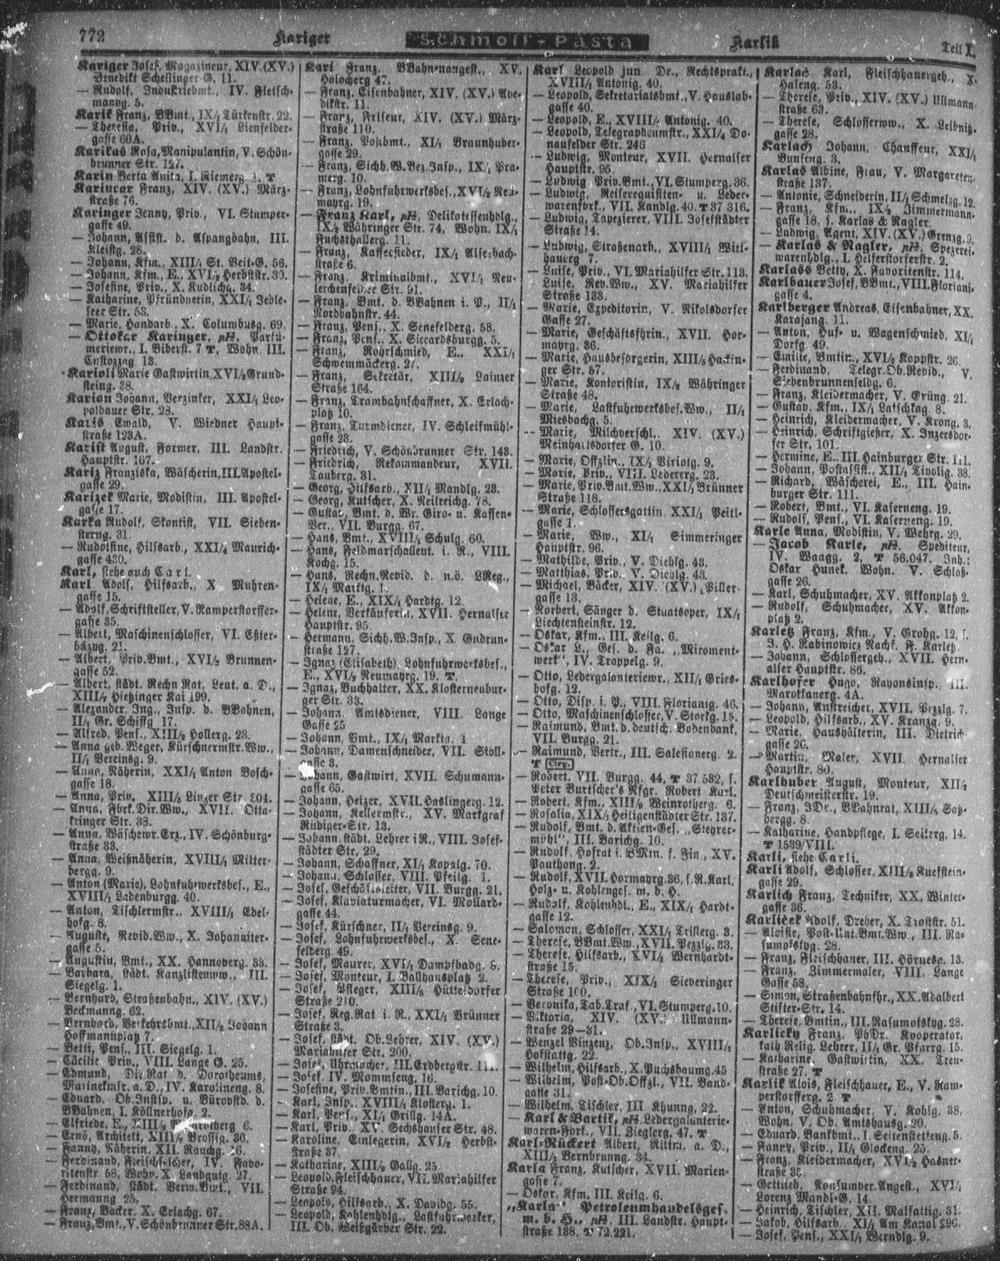 772
Kariger
Schmoll-Pasta
Karlik
Teil I.
Kariger Josef, Magazineur, XIV. (XV.)
Benedikt Schellinger-G. 11.
— Rudolf, Industriebmt., IV. Fleisch-
manng. 5.
Karik Franz, BBmt., IX/1 Türkenstr. 22.
— Theresia, Priv., XVI/1 Lienfelder-
gasse 60A.
Karikas Rosa, Manipulantin, V. Schön-
brunner Str. 127.
Karin Berta Anita, I. Riemerg. 1. T
Karincar Franz, XIV. (XV.) März-
straße 76.
Karinger Jenny, Priv., VI. Stumper-
gasse 49.
— Johann, Assist. d. Aspangbahn, III.
Kleistg. 28.
— Johann, Kfm., XIII/1 St. Veit-G. 56.
— Johann, Kfm., E., XVI/2 Herbststr. 39.
— Josefine, Priv., X. Kudlichg. 34.
— Katharine, Pfründnerin, XXI/1 Jedle-
seer Str. 53.
— Marie, Handarb., X. Columbusg. 69.
— Ottokar Karinger, Parfü-
meriewr., I. Biberstr. 7 T, Wohn. III.
Karioli Marie Gastwirtin, XVI/2 Grund-
steing. 38.
Karion Johann, Verzinker, XXI/4 Leo-
poldauer Str. 23.
Karis Ewald, V. Wiedner Haupt-
straße 123A.
Karist August, Former, III. Landstr.
Hauptstr. 167.
Karitz Franziska, Wäscherin, III. Apostel-
gasse 29.
Karizek Marie, Modistin, III. Apostel-
gasse 17.
Karka Rudolf, Skontist, VII. Sieben-
sterng. 31.
— Rudolfine, Hilfsarb., XXI/1 Maurich-
gasse 430.
Karl, siehe auch Carl.
Karl Adolf, Hilfsarb., X Muhren-
gasse 15.
— Adolf, Schriftsteller, V. Ramperstorffer-
gasse 35.
— Albert, Maschinenschlosser, VI. Ester-
házyg. 21.
— Albert, Priv. Bmt., XVI/2 Brunnen-
gasse 52.
— Albert, städt. Rechn Rat, Leut. a. D.,
XIII/1 Hietzinger Kai 199.
— Alexander, Ing., Insp. d. BBahnen,
II/1 Gr. Schiffg. 17.
— Alfred, Pens., XIII/2 Hollerg. 23.
— Anna geb. Weger, Kürschnermstr. Ww.,
II/1 Vereinsg. 9.
— Anna, Näherin, XXI/1 Anton Bosch-
gasse 18.
— Anna, Priv., XIII/5 Linzer Str. 304.
— Anna, Fbrk. Dir. Ww., XVII. Otta-
kringer Str. 38.
— Anna, Wäschewr. Erz., IV. Schönburg-
straße 33.
— Anna, Weißnäherin, XVIII/1 Mitter-
bergg. 9.
— Anton (Marie), Lohnfuhrwerksbes., E.,
XVIII/1 Ladenburgg. 40.
— Anton, Tischlermstr., XVIII/1 Edel-
hofg. 8.
— Auguste, Revid. Ww., X. Johanniter-
gasse 5.
— Augustin, Bmt., XX. Hannoverg. 33.
— Barbara, städt. Kanzlistensww., III.
Siegelg. 1.
— Bernhard, Straßenbahn., XIV. (XV.)
Beckmanng. 62.
— Bernhard, Verkehrsbmt., XII/2 Johann
Hoffmannplatz 7.
— Betti, Pens., III. Siegelg. 1.
— Cäcilie, Priv., VIII. Lange G. 25.
— Edmund, Dir. Rat d. Dorotheums,
Marinekmsr. a. D., IV. Karolineng. 8.
— Eduard, Ob. Insp. u. Bürovstd. d.
BBahnen, I. Köllnerhofg. 2.
— Ernö, Architekt, XIII/1 Brossig. 30.
— Fanny, Näherin, XII. Rauchg.
— Ferdinand, Fleischselcher, IV. Favo-
ritenstr. 58, Wohn. X. Landgutg. 27.
— Ferdinand, städt. Verw. Bmt., VII.
Hermanng. 25.
— Franz, Bäcker, X. Erlachg. 67.
— Franz, Bmt., V. Schönbrunner Str. 88A.
Karl Franz, BBahnangest., XV.
Holocherg. 47.
— Franz, Eisenbahner, XIV. (XV.) Ave-
dikstr. 11.
— Franz, Friseur, XIV. (XV.) März-
straße 110.
— Franz, Postbmt., XI/1 Braunhuber-
gasse 29.
— Franz, Sichh. W. Bez. Insp., IX/1 Pra-
merg. 10.
— Franz, Lohnfuhrwerksbes., XVI/2 Neu-
mayrg. 19.
— Franz Karl, Delikatessenhdlg.,
IX/2 Währinger Str. 74, Wohn. IX/1
Fuchsthallerg. 11.
— Franz, Kaffeesieder, IX/1 Alserbach-
straße 6.
— Franz, Kriminalbmt., XVI/1 Neu-
lerchenfelder Str. 51.
— Franz, Bmt. d. BBahnen i. P., II/1
Nordbahnstr. 44.
— Franz, Pens., X. Senefelderg. 58.
— Franz, Pens., X. Siccardsburgg. 5.
— Franz, Rohrschmied, E., XXI/1
Schwemmäckerg. 27.
— Franz, Sekretär, XIII/2 Lainzer
Straße 164.
— Franz, Trambahnschaffner, X. Erlach-
platz 10.
— Franz, Turmdiener, IV. Schleifmühl-
gasse 23.
— Friedrich, V. Schönbrunner Str. 143.
— Friedrich, Rekommandeur, XVII.
Taubergg. 31.
— Georg, Hilfsarb., XII/1 Mandlg. 23.
— Georg, Kutscher, X. Neilreichg. 78.
— Gustav, Bmt. d. Wr. Giro- u. Kassen-
Ver., VII. Burgg. 67.
— Hans, Bmt., XVIII/1 Schulg. 60.
— Hans, Feldmarschalleut. i. R., VIII.
Kochg. 15.
— Hans, Rechn. Revid. d. n.ö. LReg.,
IX/1 Marktg. 1.
— Helene, E., XIX/1 Hardtg. 12.
— Helene, Verkäuferin, XVII. Hernalser
Hauptstr. 95.
— Hermann, Sichh. W. Insp., X Gudrun-
straße 127.
— Ignaz (Elisabeth), Lohnfuhrwerksbes.,
E., XVI/1 Neumayrg. 19. T.
— Ignaz, Buchhalter, XX. Klosterneubur-
ger Str. 33.
— Johann, Amtsdiener, VIII. Lange
Gasse 25
— Johann, Bmt., IX/1 Marktg. 1
— Johann, Damenschneider, VII. Stoll-
gasse 3.
— Johann, Gastwirt, XVII. Schumann-
gasse 65.
— Johann, Heizer, XVII. Haslingerg. 12.
— Johann, Kellermstr., XV. Markgraf
Rüdiger-Str. 13.
— Johann, städt. Lehrer i R., VIII. Josef-
städter Str. 29.
— Johann, Schaffner, XI/1 Kopalg. 70.
— Johann, Schlosser, VIII. Pfeilg. 1.
— Josef, Geschäftsleiter, VII. Burgg. 21.
— Josef, Klaviaturmacher, VI. Mollard-
gasse 44.
— Josef, Kürschner, II/1 Vereinsg. 9.
— Josef, Lohnfuhrwerksbes., X. Sene-
felderg. 49.
— Josef, Maurer, XVI/1 Dampfbadg. 6.
— Josef, Monteur, I. Ballhausplatz 2.
— Josef, Pfleger, XIII/5 Hütteldorfer
Straße 210.
— Josef, Reg. Rat i. R., XXI/1 Brünner
Straße 3.
— Josef, städt. Ob. Lehrer, XIV. (XV.)
Mariahilfer Str. 200.
— Josef, Uhrmacher, III. Erdbergstr. 111.
— Josef, IV. Mommseng. 16.
— Josefine, Priv. Bmtin., III. Barichg. 10.
— Karl, Insp., XVIII/1 Klosterg. 1.
— Karl, Pens., XI/1 Grillg. 14A.
— Karl, Priv., XV. Sechshauser Str. 48.
— Karoline, Einlegerin, XVI/1 Herbst-
straße 37.
— Katharine, XIII/2 Gallg. 25.
— Leopold, Fleischhauer, VII. Mariahilfer
Straße 94.
— Leopold, Hilfsarb., X. Davidg. 55.
— Leopold, Kohlenhdlg., Lastfuhrwerker,
III. Ob. Weißgärber Str. 22.
Karl Leopold jun. Dr., Rechtsprakt.,
XVIII/1 Antonig. 40.
— Leopold, Sekretariatsbmt., V. Hauslab-
gasse 40.
— Leopold, E., XVIII/1 Antonig. 40.
— Leopold, Telegraphenmstr., XXI/4 Do-
naufelder Str. 246
— Ludwig, Monteur, XVII. Hernalser
Hauptstr. 95.
— Ludwig, Priv. Bmt., VI. Stumperg. 36.
— Ludwig, Reiserequisiten- u. Leder-
warenfbrk., VII. Kandlg. 40. T 37 316.
— Ludwig, Tapezierer, VIII. Josefstädter
Straße 14.
— Ludwig, Straßenarb., XVIII/1 Witt-
hauerg. 7
— Luise, Priv., VI. Mariahilfer Str. 113.
— Luise, Rev. Ww., XV. Mariahilfer
Straße 133.
— Marie, Expeditorin, V. Nikolsdorfer
Gasse 27.
— Marie, Geschäftsfhrin., XVII. Hor-
mayrg. 36.
— Marie, Hausbesorgerin, XIII/5 Hackin-
ger Str. 57.
— Marie, Kontoristin, IX/2 Währinger
Straße 48.
— Marie, Lastfuhrwerksbes. Ww., II/1
Miesbachg. 5.
— Marie, Milchverschl., XIV. (XV.)
Meinhartsdorfer G. 10.
— Marie, Offzlin., IX/4 Viriotg. 9.
— Marie, Priv., VIII. Ledererg. 23.
— Marie, Priv. Bmt. Ww., XXI/1 Brünner
Straße 118.
— Marie, Schlossersgattin, XXI/1 Peitl-
gasse 1.
— Marie, Ww., XI/1 Simmeringer
Hauptstr. 96.
— Mathilde, Priv., V. Diehlg. 43.
— Matthias, Priv., V. Diehlg. 43.
— Michael, Bäcker, XIV. (XV.) Piller-
gasse 13.
— Norbert, Sänger d. Staatsoper, IX/1
Liechtensteinstr. 12.
— Oskar, Kfm., III. Keilg. 6.
— Oskar L., Ges. d. Fa. „Miroment-
werk“, IV. Trappelg. 9.
— Otto, Ledergalanteriewr., XII/1 Gries-
hofg. 12.
— Otto, Disp. i. P., VIII. Florianig. 46.
— Otto, Maschinenschlosser, V. Storkg. 15.
— Raimund, Bmt. d. deutsch. Bodenbank,
VII. Burgg. 21.
— Raimund, Vertr., III. Salesianerg. 2.
T
— Robert, VII. Burgg. 44, T 37.532, s.
Peter Burtscher's Nfgr. Robert Karl.
— Robert, Kfm., XIII/2 Weinrotherg. 6.
— Rosalia, XIX/1 Heiligenstädter Str. 137.
— Rudolf, Bmt. d. Aktien-Ges. „Stegrer-
mühl“, III. Barichg. 10.
— Rudolf, Hofrat i. BMin. f. Fin., XV.
Pouthong. 2.
— Rudolf, XVII. Hormayrg. 36, s. R. Karl,
Holz- u. Kohlenges. m. b. H.
— Rudolf, Kohlenhdl., E., XIX/1 Hardt-
gasse 12.
— Salomon, Schlosser, XXI/4 Trillerg. 3.
— Therese, BBmt. Ww., XVII. Pezzlg. 23.
— Therese, Hilfsarb., XVI/1 Wernhardt-
straße 15.
— Therese, Priv., XIX/2 Sieveringer
Straße 100.
— Veronika, Tab. Traf., VI. Stumperg. 10.
— Viktoria, XIV. (XV.) Ullmann-
straße 29—31.
— Wenzel Vinzenz, Ob. Insp., XVIII/1
Hofstattg. 22.
— Wilhelm, Hilfsarb., X. Puchsbaumg. 45
— Wilhelm, Post-Ob. Offzl., VII. Band-
gasse 31.
— Wilhelm, Tischler, III. Khunng. 22.
— Karl & Bartik, Ledergalanterie-
waren-Fbrk., VII. Zieglerg. 47. T
Karl-Rückert Albert, Rittm. a. D.,
XIII/1 Bernbrunng. 34.
Karla Franz, Kutscher, XVII. Marien-
gasse 7.
— Oskar, Kfm., III. Keilg. 6.
„Karla“ Petroleumhandelsges.
m. b. H., III. Landstr. Haupt-
straße 138. T 72.221.
Karlas Karl, Fleischhauergeh., X.
Haseng. 53.
— Therese, Priv., XIV. (XV.) Ullmann-
straße 63.
— Therese, Schlosserww., X. Leibnitz-
gasse 28.
Karlach Johann, Chauffeur, XXI/1
Bunseng. 3.
Karlas Albine, Frau, V. Margareten-
straße 137.
— Antonie, Schneiderin, II/1 Schmelzg. 12.
— Franz, Kfm., IX/2 Zimmermann-
gasse 18, s. Karlas & Nagler.
— Ludwig, Agent, XIV. (XV.) Grenzg. 9.
— Karlas & Nagler, Spezerei-
warenhdlg., I. Helferstorferstr. 2.
Karlass Betty, X. Favoritenstr. 114.
Karlbauer Josef, BBmt., VIII. Floriani-
gasse 4.
Karlberger Andreas, Eisenbahner, XX.
Karajang. 11.
— Anton, Huf- u. Wagenschmied, XI/1
Dorfg. 49.
— Emilie, Bmtin., XVI/2 Koppstr. 26.
— Ferdinand, Telegr. Ob. Revid., V.
Siebenbrunnenfeldg. 6.
— Franz, Kleidermacher, V. Grüng. 21.
— Gustav, Kfm., IX/1 Latschkag. 8.
— Heinrich, Kleidermacher, V. Krong. 3.
— Heinrich, Schriftgießer, X. Inzersdor-
fer Str. 101.
— Hermine, E., III. Hainburger Str. 111.
— Johann, Postassist., XII/1 Tivolig. 38.
— Richard, Wäscherei, E., III. Hain-
burger Str. 111.
— Robert, Bmt., VI. Kaserneng. 19.
— Rudolf, Pens., VI. Kaserneng. 19.
Karle Anna, Modistin, V. Wehrg. 29.
— Jacob Karle, Spediteur,
IV. Waagg. 2, T 56.047. Inh.:
Oskar Hunek. Wohn. V. Schloß-
gasse 26.
— Karl, Schuhmacher, XV. Akkonplatz 2.
— Rudolf, Schuhmacher, XV. Akkon-
platz 2.
Karletz Franz, Kfm., V. Grohg. 12, s.
J. H. Rabinowicz Nachf. F. Karletz.
— Johann, Schlossergeh., XVII. Hern-
alser Hauptstr. 86.
Karlhofer Hugo, Rayonsinsp., III.
Marokkanerg. 4A.
— Johann, Anstreicher, XVII. Pezzlg. 7.
— Leopold, Hilfsarb., XV. Kranzg. 9.
— Marie, Haushälterin, III. Dietrich-
gasse 26.
— Martin, Maler, XVII. Hernalser
Hauptstr. 80.
Karlhuber August, Monteur, XII/2
Deutschmeisterstr. 19.
— Franz, JDr., BBahnrat, XIII/4 Gaß-
bergg. 8.
— Katharine, Handpflege, I. Seilerg. 14.
T 1539/VIII.
Karli, siehe Carli.
Karli Adolf, Schlosser, XIII/2 Kuefstein-
gasse 29.
Karlich Franz, Techniker, XX. Winter-
gasse 36.
Karlicek Adolf, Dreher, X. Troststr. 51.
— Aloisie, Post-Unt. Bmt. Ww., III. Ra-
sumofskyg. 28.
— Franz, Fleischhauer, III. Hörnesg. 13.
— Franz, Zimmermaler, VIII. Lange
Gasse 58.
— Simon, Straßenbahnfhr., XX. Adalbert
Stifter-Str. 14.
— Therese, Bmtin., III. Rasumofskyg. 28.
Karlicky Franz, PhDr., Kooperator,
kath. Relig. Lehrer, II/1 Gr. Pfarrg. 15.
— Katharine, Gastwirtin, XX. Treu-
straße 27. T
Karlik Alois, Fleischhauer, E., V. Ram-
perstorfferg. 2 T
— Anton, Schuhmacher, V. Kohlg. 38,
Wohn. V. Ob. Amtshausg. 20.
— Eduard, Bankbmt., I. Seitenstetteng. 5.
— Fanny, Priv., II/4 Glockeng. 25.
— Franz, Kleidermacher, XVI/2 Hasner-
straße 35.
— Gottlieb, Konsumver. Angest., XVI/1
Lorenz Mandl-G. 14.
— Heinrich, Tischler, XII. Malfattig. 31.
— Jakob, Hilfsarb., XI/1 Am Kanal 296.
— Josef, Pens., XXI/1 Werndlg. 9.